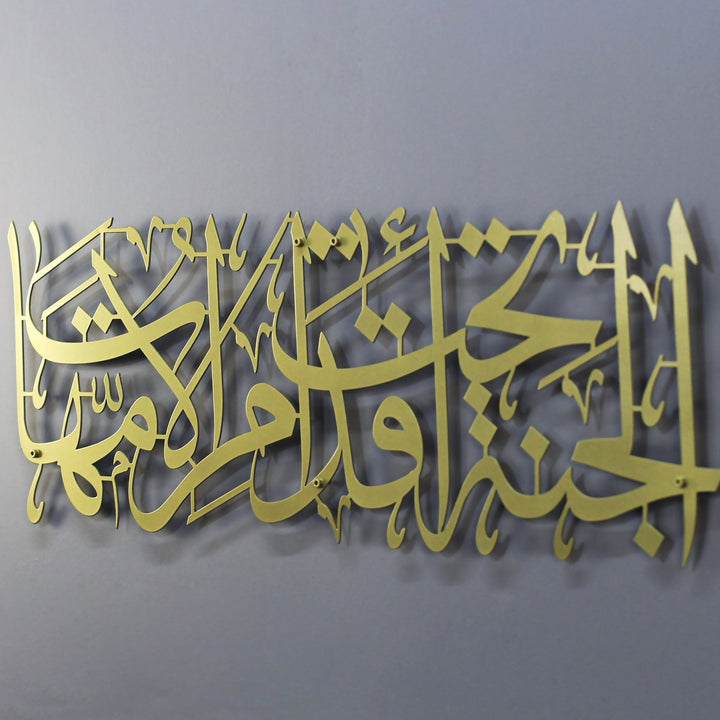 الجنة تحت أقدام الأمهات